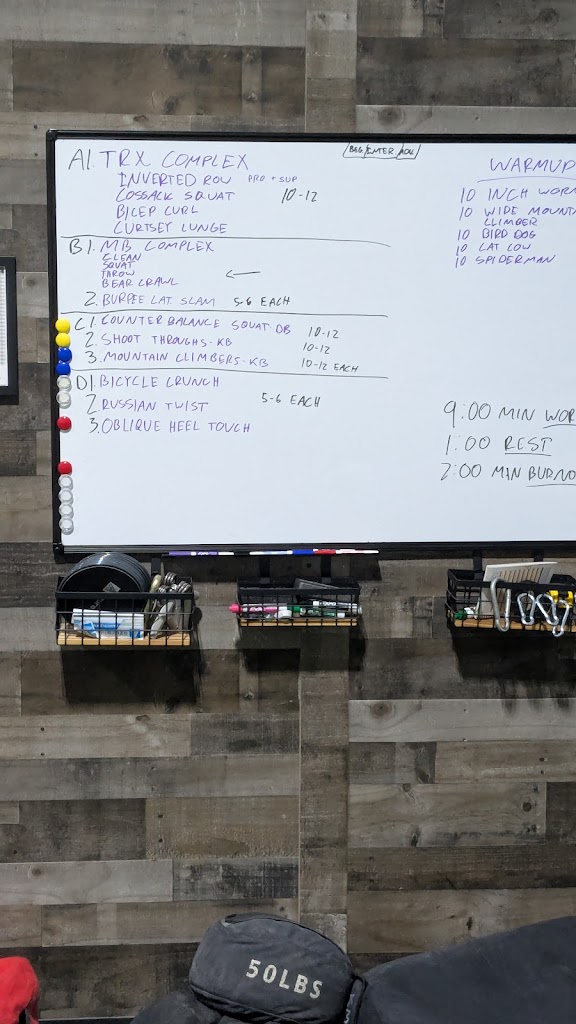 BEG/INTER/ADV
A1. TRX COMPLEX
INVERTED ROW PRO + SUP
COSSACK SQUAT 10-12
BICEP CURL
CURTSEY LUNGE
B1. MB COMPLEX
CLEAN
SQUAT
THROW
BEAR CRAWL ←
2. BURPEE LAT. SLAM 5-6 EACH
C1. COUNTER BALANCE SQUAT-DB 10-12
2. SHOOT THROUGHS-KB 10-12
3. MOUNTAIN CLIMBERS-KB 10-12 EACH
D1. BICYCLE CRUNCH
2. RUSSIAN TWIST 5-6 EACH
3. OBLIQUE HEEL TOUCH
WARMUP
10 INCH WORM
10 WIDE MOUNT
CLIMBER
10 BIRD DOG
10 LAT LOW
10 SPIDERMAN
9:00 MIN WOR
1:00 REST
2:00 MIN BURNO
50LBS